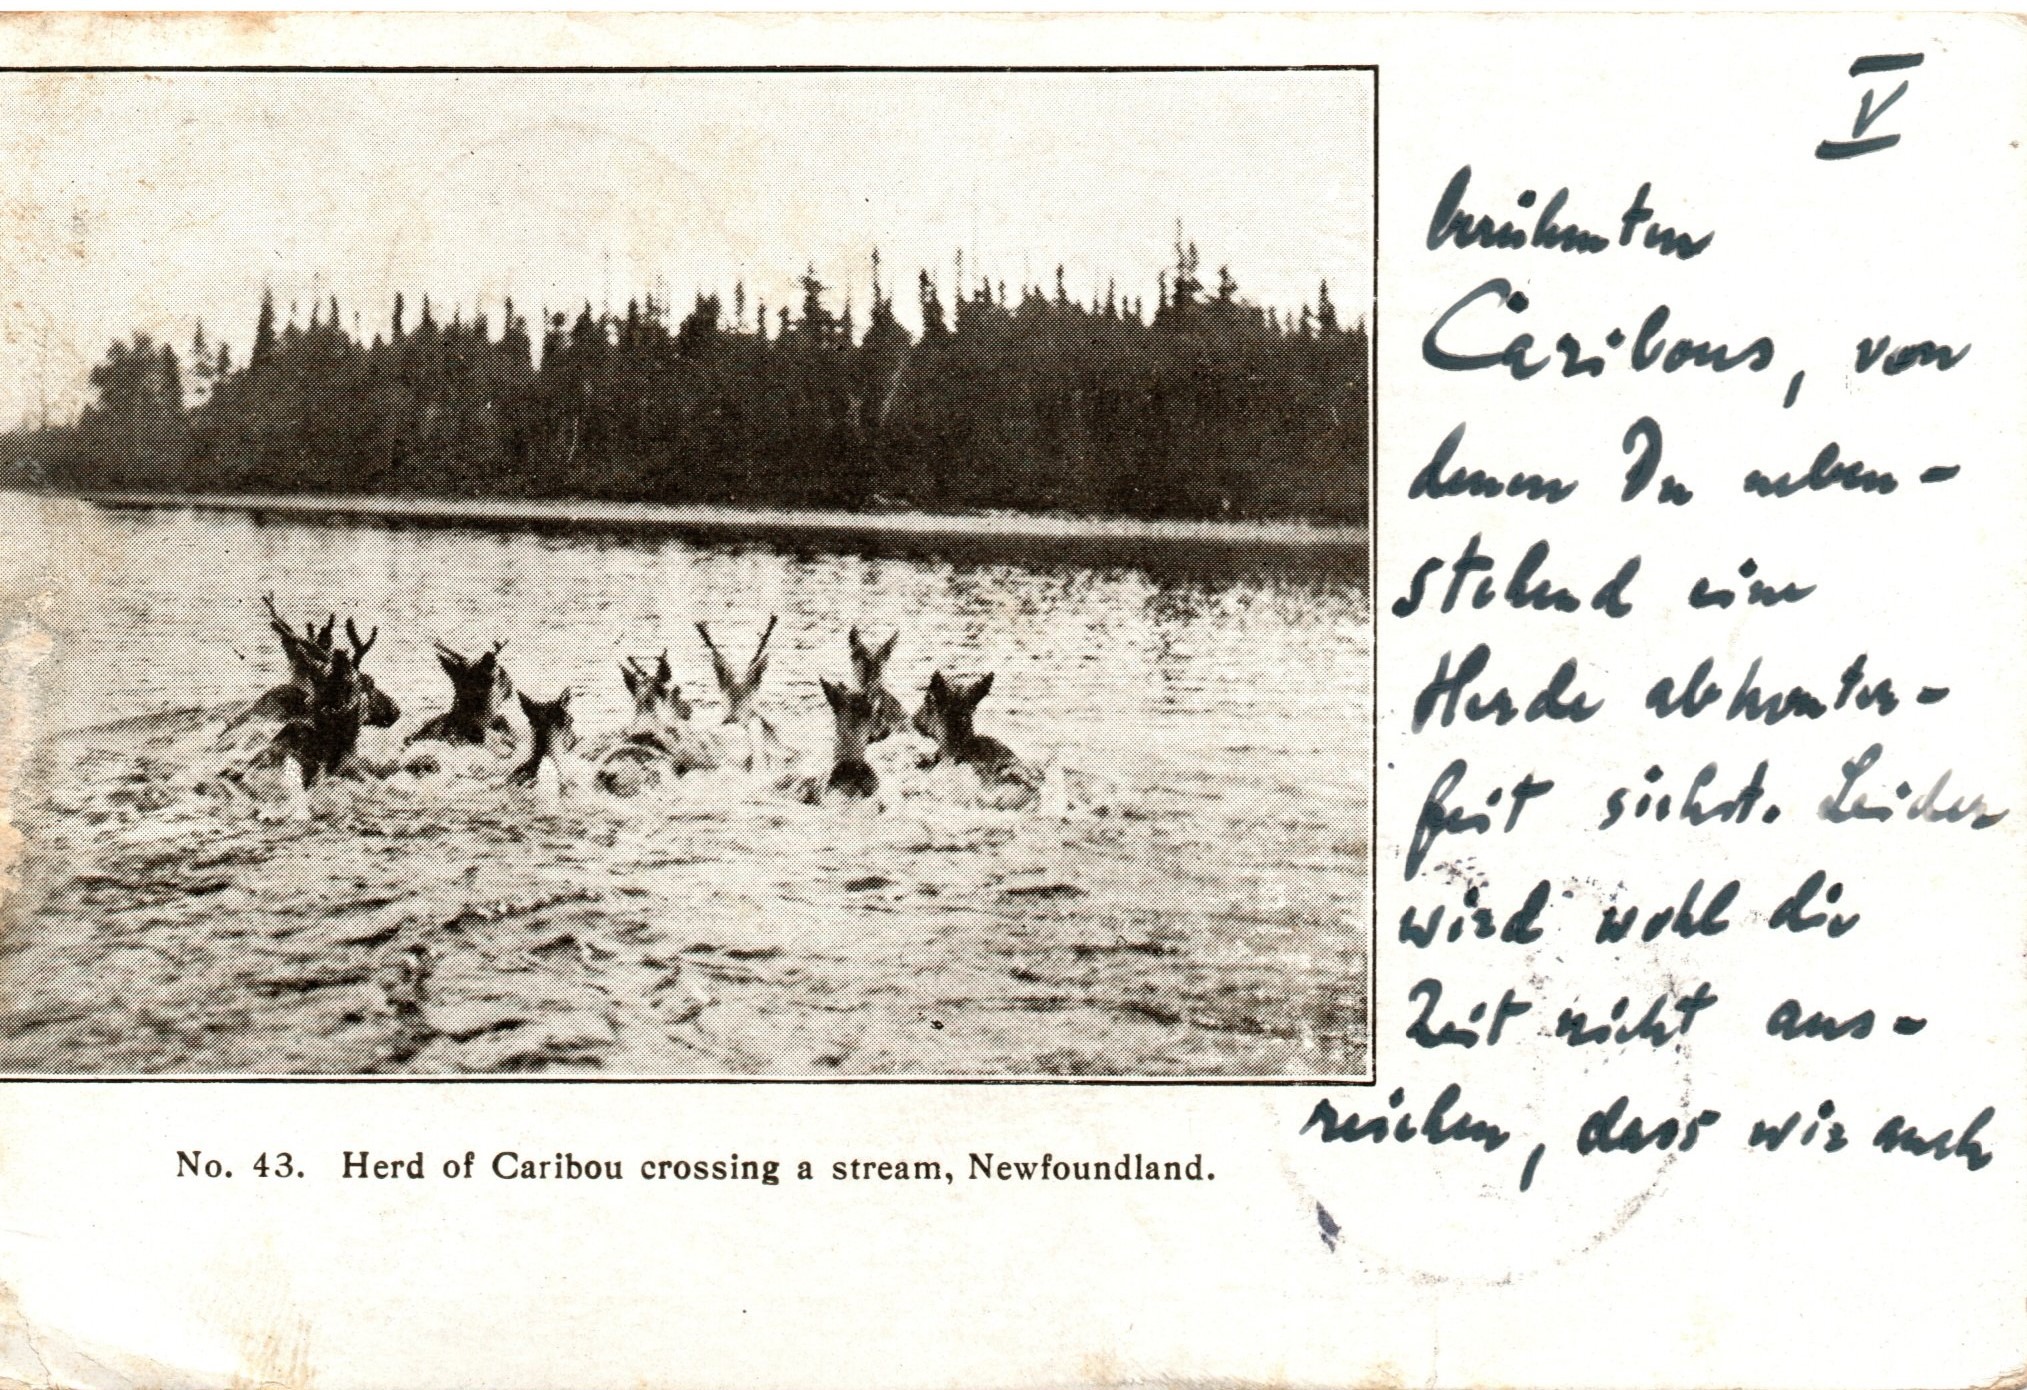 V
berühmten
Caribous, von
denen Du neben-
stehend eine
Herde abkonter-
feit siehst. Leider
wird wohl die
Zeit nicht aus-
reichen, dass wir auch
No. 43. Herd of Caribou crossing a stream, Newfoundland.